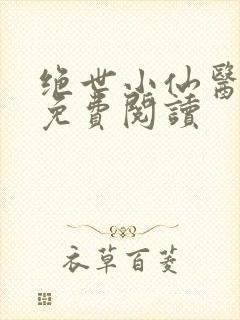 绝世小仙醫
免費閱讀
衣草百菱